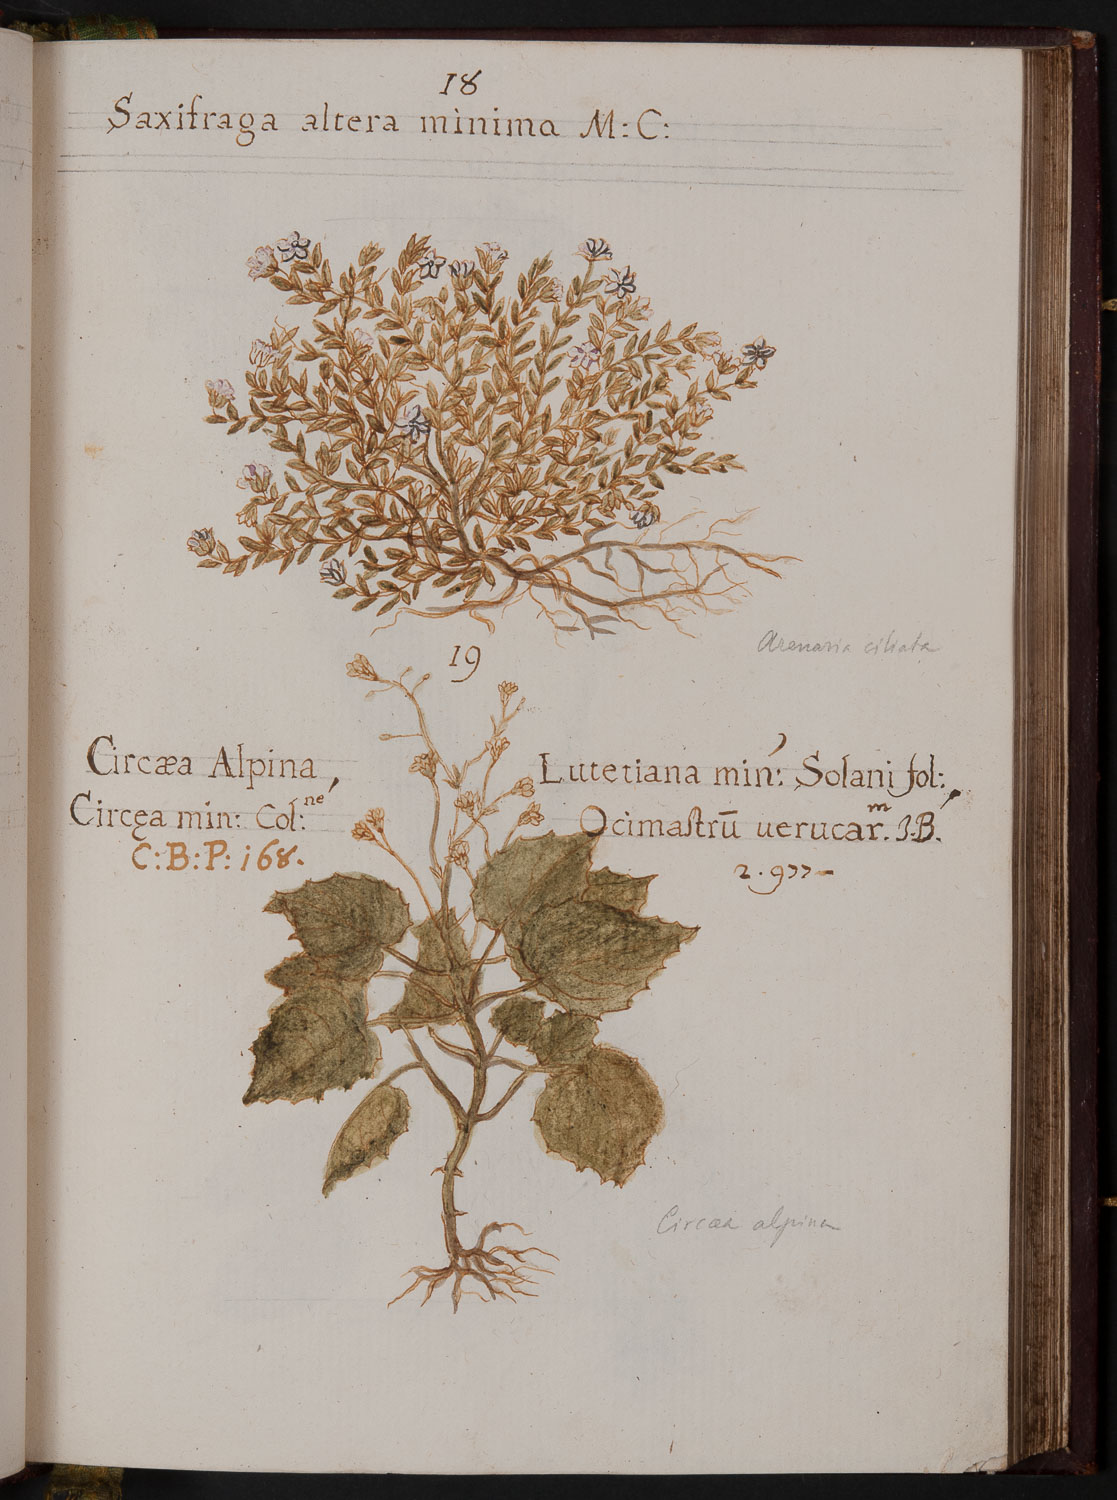 18
Saxifraga altera minima M: C:
Arenaria ciliata
19
Circæa Alpina,
Circęa min: Col:ne
C: B: P: 168.
Lutetiana min: Solani fol:,
Ocimastrū uerucar.m J.B.
2. 977
Circaea alpina